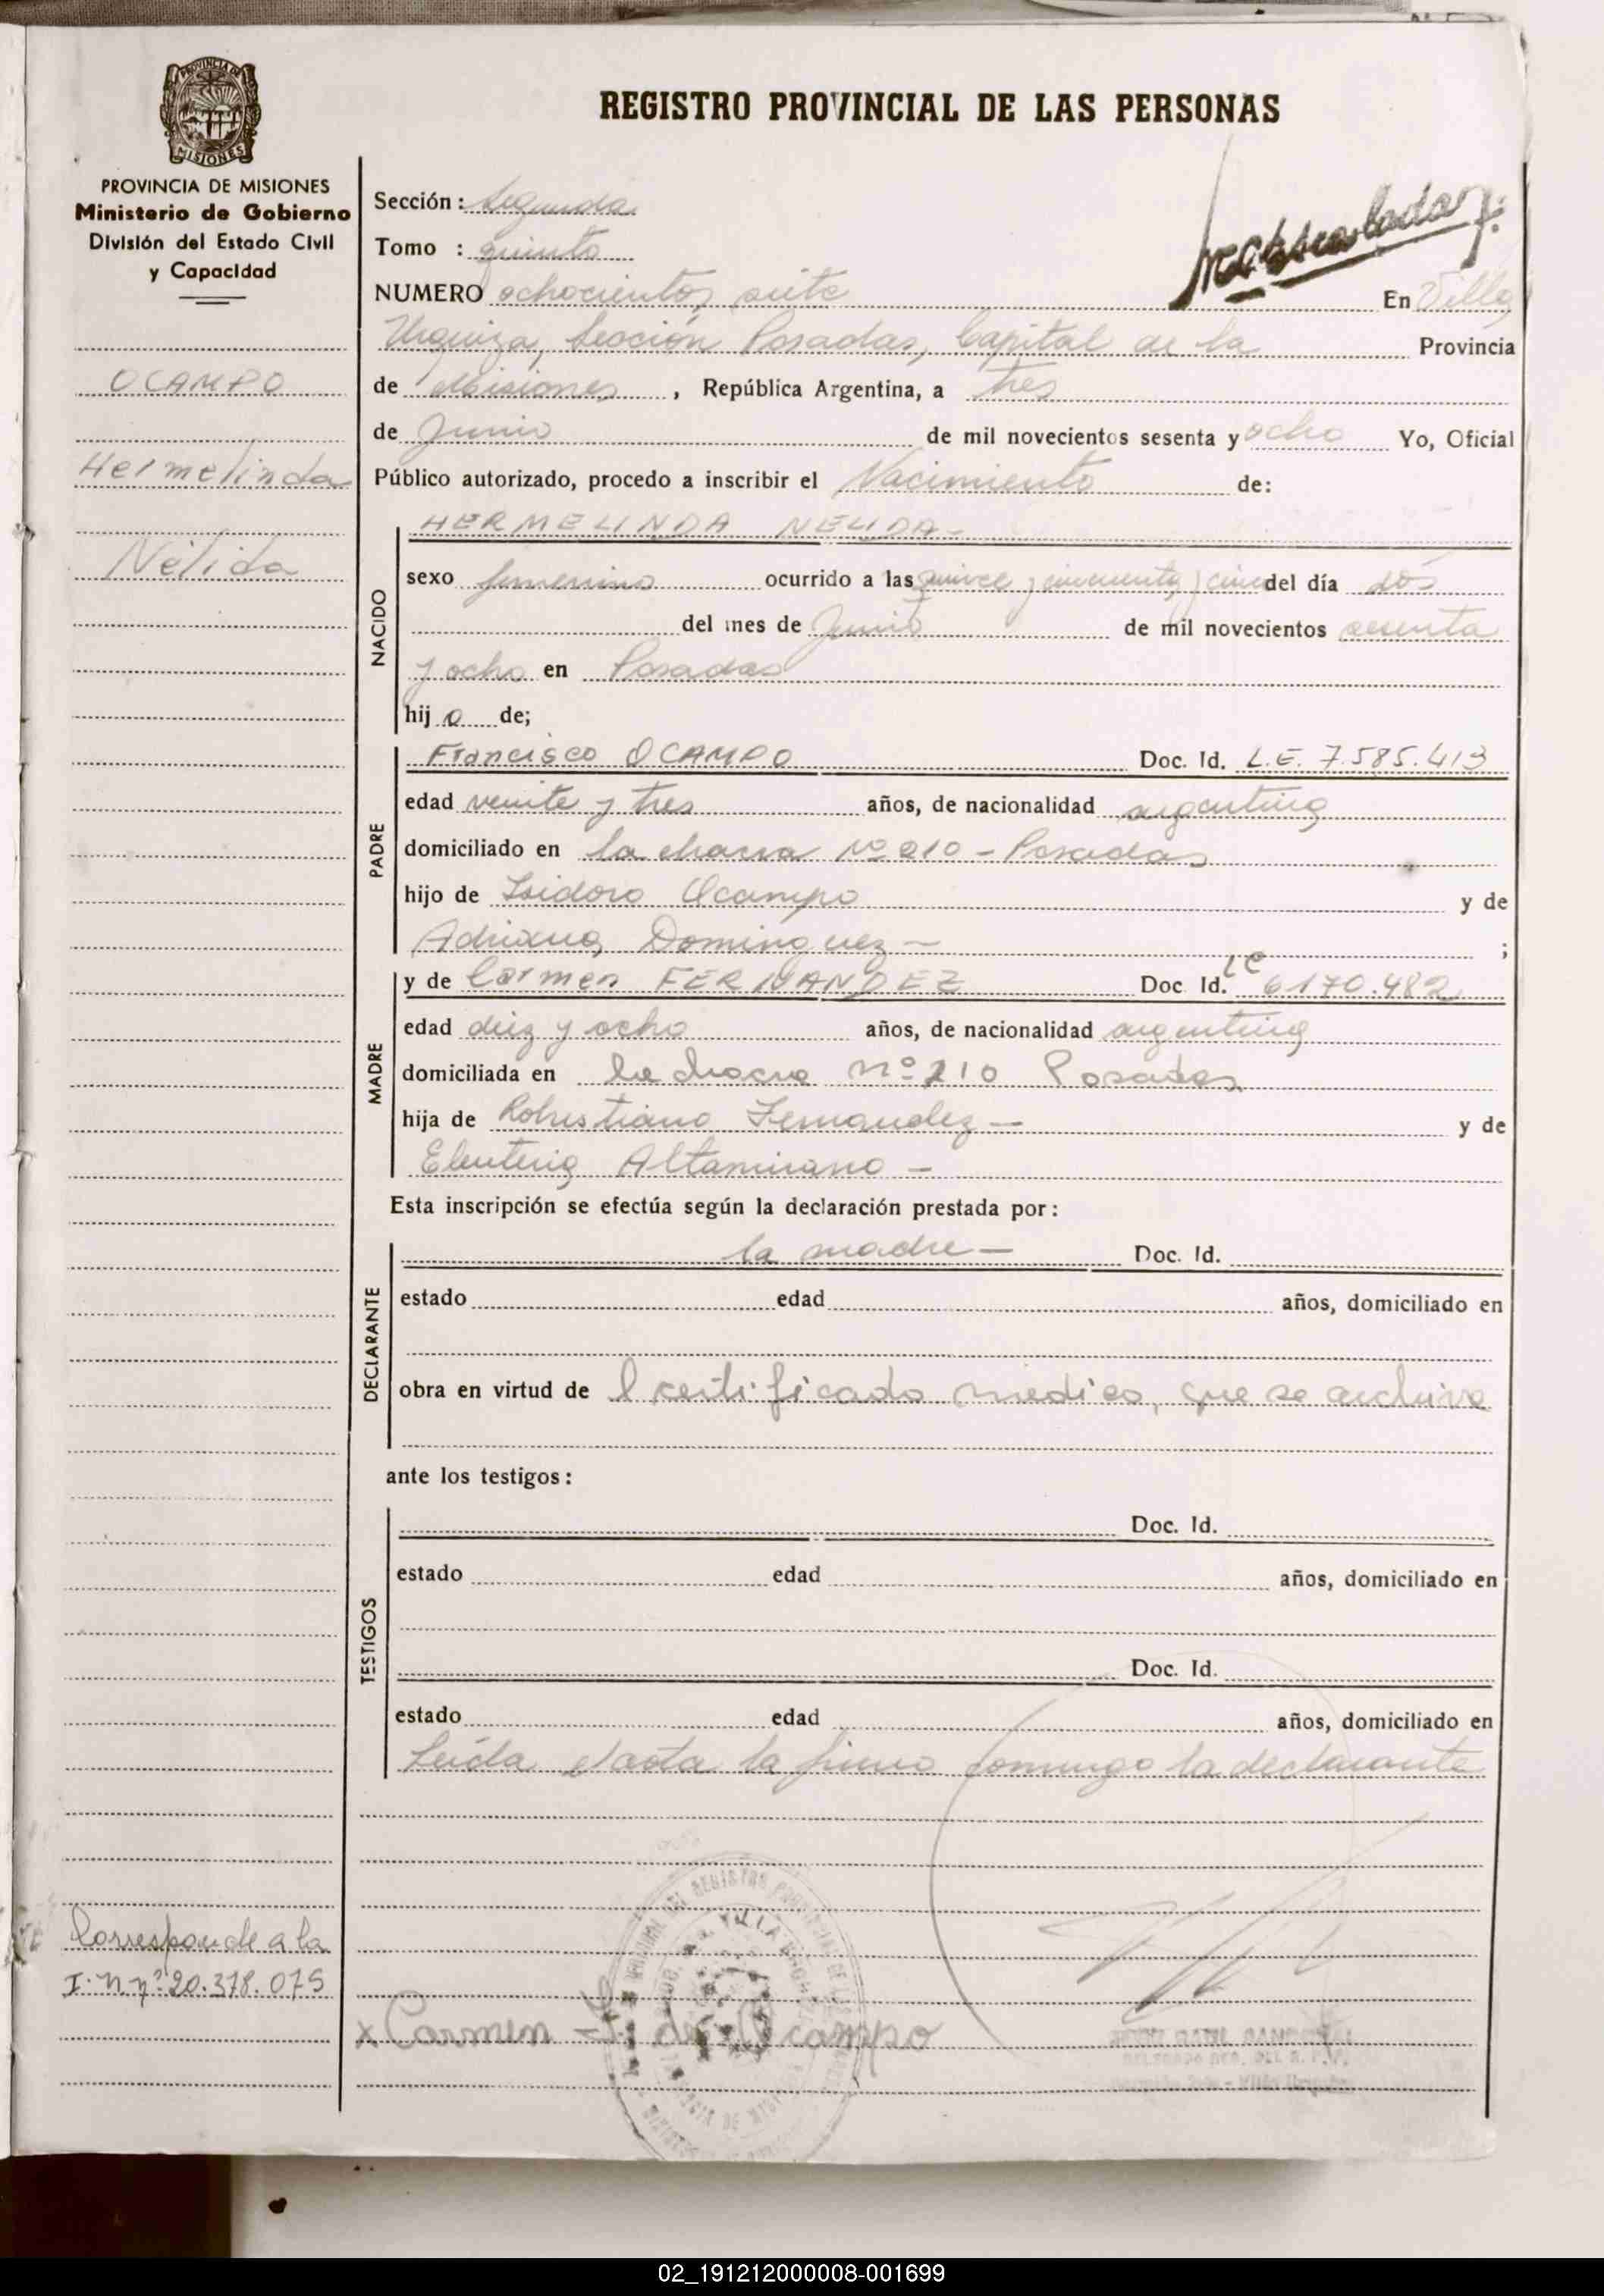 REGISTRO PROVINCIAL DE LAS PERSONAS
PROVINCIA DE MISIONES
Ministerio de Gobierno
División del Estado Civil
y Capacidad
OCAMPO
Hermelinda
Nélida
Sección: Segunda
Tomo : quinto
NUMERO ochocientos siete En Villa
Urquiza, Sección Posadas, Capital de la Provincia
de Misiones, República Argentina, a tres
de Junio de mil novecientos sesenta y ocho Yo, Oficial
Público autorizado, procedo a inscribir el Nacimiento de:
NACIDO
HERMELINDA NELIDA-
sexo femenino ocurrido a las quince y cincuenta y cinco del día dos
del mes de Junio de mil novecientos sesenta
y ocho en Posadas
hij a de;
PADRE
Francisco OCAMPO Doc. Id. L.E. 7.585.413
edad veinte y tres años, de nacionalidad argentina
domiciliado en la chacra nº 210 - Posadas
hijo de Isidoro Ocampo y de
Adriana Dominguez - ;
MADRE
y de Carmen FERNANDEZ Doc. Id. LC 6170.482
edad diez y ocho años, de nacionalidad argentina
domiciliada en la chacra nº 210 Posadas
hija de Robustiano Fernandez - y de
Eleuteria Altamirano -
Esta inscripción se efectúa según la declaración prestada por:
DECLARANTE
la madre - Doc. Id.
estado edad años, domiciliado en
obra en virtud de l certificado medico, que se archiva
ante los testigos:
TESTIGOS
Doc. Id.
estado edad años, domiciliado en
Doc. Id.
estado edad años, domiciliado en
Leída el acta la firma conmigo la declarante
Corresponde a la
I.N. nº 20.378.075
x Carmen F. de Ocampo
02_191212000008-001699